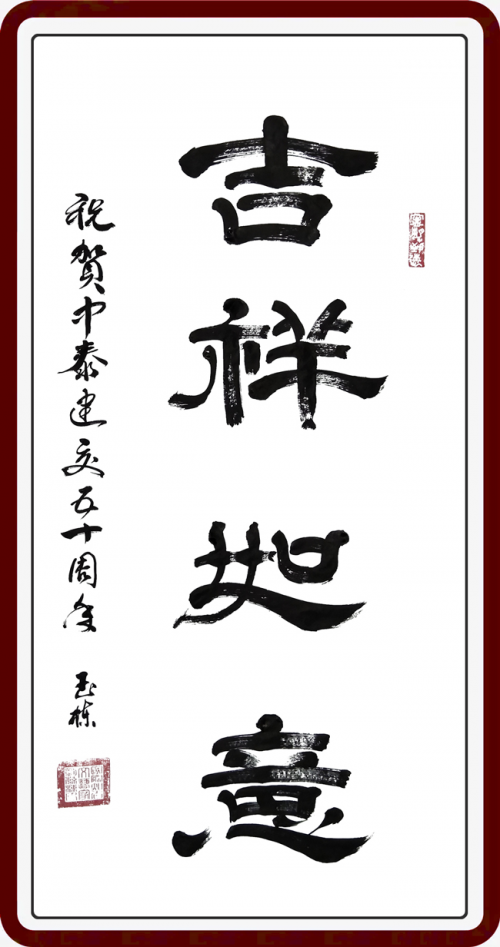 吉祥如意
祝贺中泰建交五十周年
玉栋